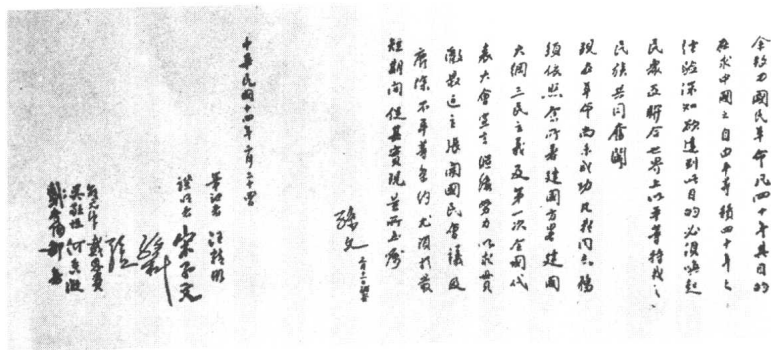 余致力國民革命凡四十年其目的
在求中國之自由平等積四十年之
經驗深知欲達到此目的必須喚起
民眾及聯合世界上以平等待我之
民族共同奮鬪
現在革命尚未成功凡我同志務
須依照余所著建國方略建國
大綱三民主義及第一次全國代
表大會宣言繼續努力以求貫
徹最近主張開國民會議及
廢除不平等條約尤須於最
短期間促其實現是所至囑
孫文
中華民國十四年二月二十四日
筆記者 汪精衛
證明者 宋子文
孫科
戴恩賽
吳敬恆 何香凝
鄒魯